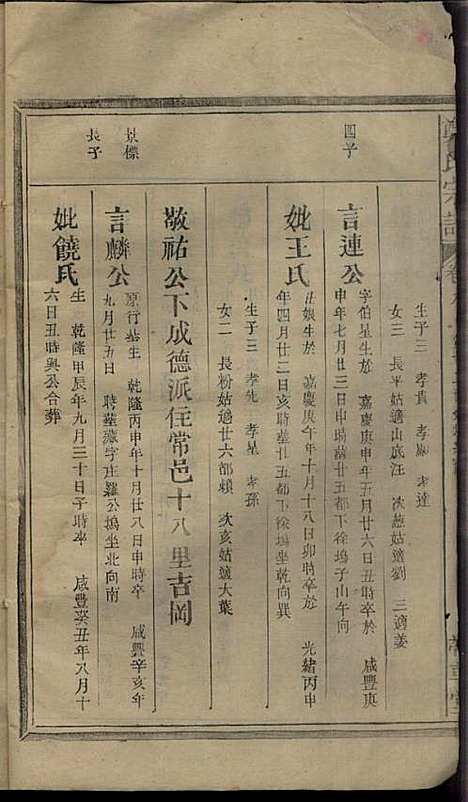 生子三 孝貴 孝顯 孝達
女三 長平姑適山底汪 次慈姑適劉 三適姜
四子
言連公
字伯星生於 嘉慶庚申年五月廿六日丑時卒於 咸豐庚
申年七月廿三日申時葬廿五都下徐塢子山午向
妣王氏
丑娘生於 嘉慶庚午年十月十八日卯時卒於 光緒丙申
年四月廿二日亥時葬廿五都下徐塢坐乾向巽
生子三 孝先 孝星 孝孫
女二 長粉姑適廿六都賴 次亥姑適大葉
敬祐公下成德派住常邑十八里吉岡
景標
長子
言麟公
原行 生 乾隆丙申年十月廿八日申時卒 咸豐辛亥年
九月廿五日 時葬濃字庄羅公塢坐北向南
妣饒氏
生 乾隆甲辰年九月三十日子時卒 咸豐癸丑年八月十
六日丑時與公合葬